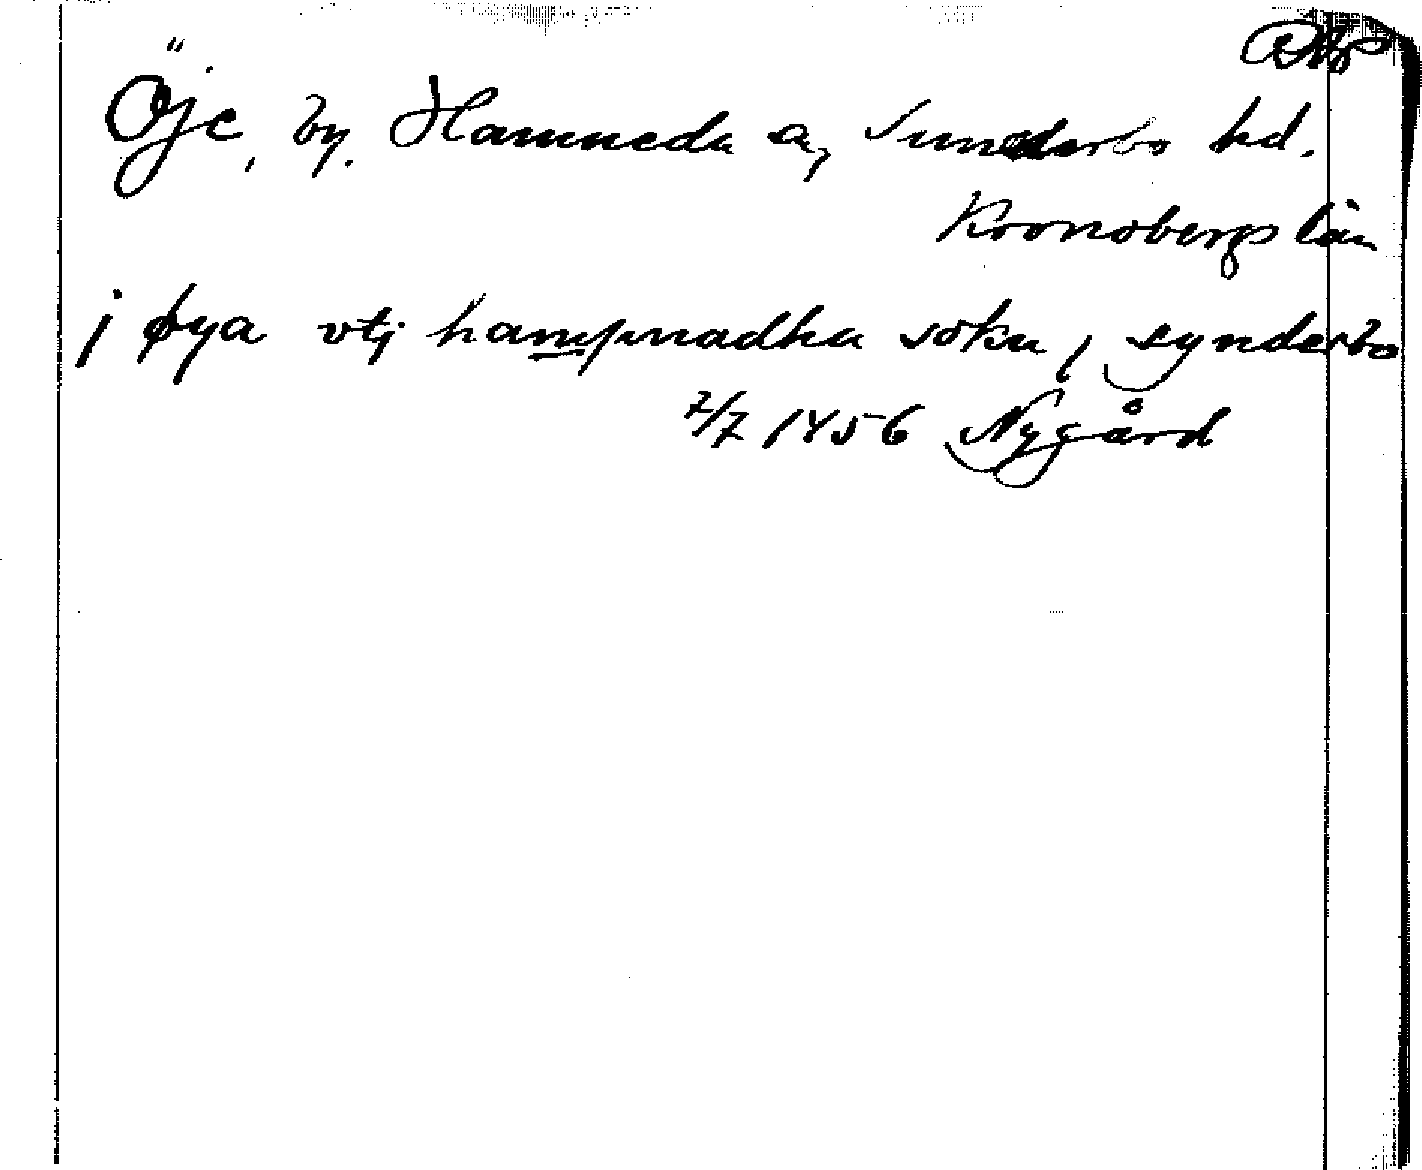 Öje, by. Hamneda s, Sunnerbo hd.
Kronobergs län
j øya vtj hampnadha sokn, synderbo
7/7 1456 Nygård